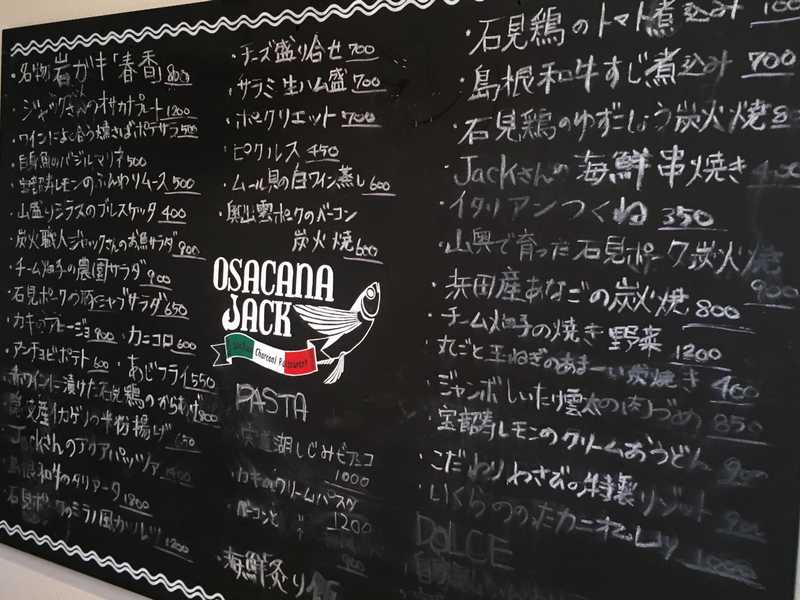 ・名物岩ガキ「春香」800
・ジャックさんのオサカナプレート 1200
ワインによく合う燻さばポテサラ 500
・白身魚のバジルマリネ 500
レモンのふんわりムース 500
・山盛りシラスのブルスケッタ 400
・炭火職人ジャックさんのお魚サラダ 900
・チーム畑子の農園サラダ 900
・石見ポークの豚シャブサラダ 650
・カキのアヒージョ 800 ・カニコロ 600
・アンチョビポテト 600 ・あじフライ 550
赤ワインに漬けた石見鶏のからあげ 800
産イカゲソの米粉揚げ 650
Jackさんのアクアパッツァ
島根和牛のタリアータ 1800
石見ポークのミラノ風カツレツ 1200
・チーズ盛り合せ 700
・サラミ生ハム盛 700
・ポークリエット 700
・ピクルス 450
・ムール貝の白ワイン蒸し 600
・奥出雲ポークのベーコン
炭火焼 600
OSACANA
JACK
Charcoal Restaurant
PASTA
しじみビアンコ
1000
・カキのクリームパスタ
1200
・ベーコンと
900
・海鮮炙り
・石見鶏のトマト煮込み
・島根和牛すじ煮込み 700
・石見鶏のゆずこしょう炭火焼
・Jackさんの海鮮串焼き 400
・イタリアンつくね 350
・山奥で育った石見ポーク炭火焼
900
・浜田産あなごの炭火焼 800
・チーム畑子の焼き野菜 1200
・丸ごと玉ねぎのあまーい炭焼き 400
・ジャンボしいたけ雲太の肉づめ 850
レモンのクリームおうどん 900
・こだわりわさびの特製リゾット 900
・いくらののったカニオムレツ 1000
DOLCE